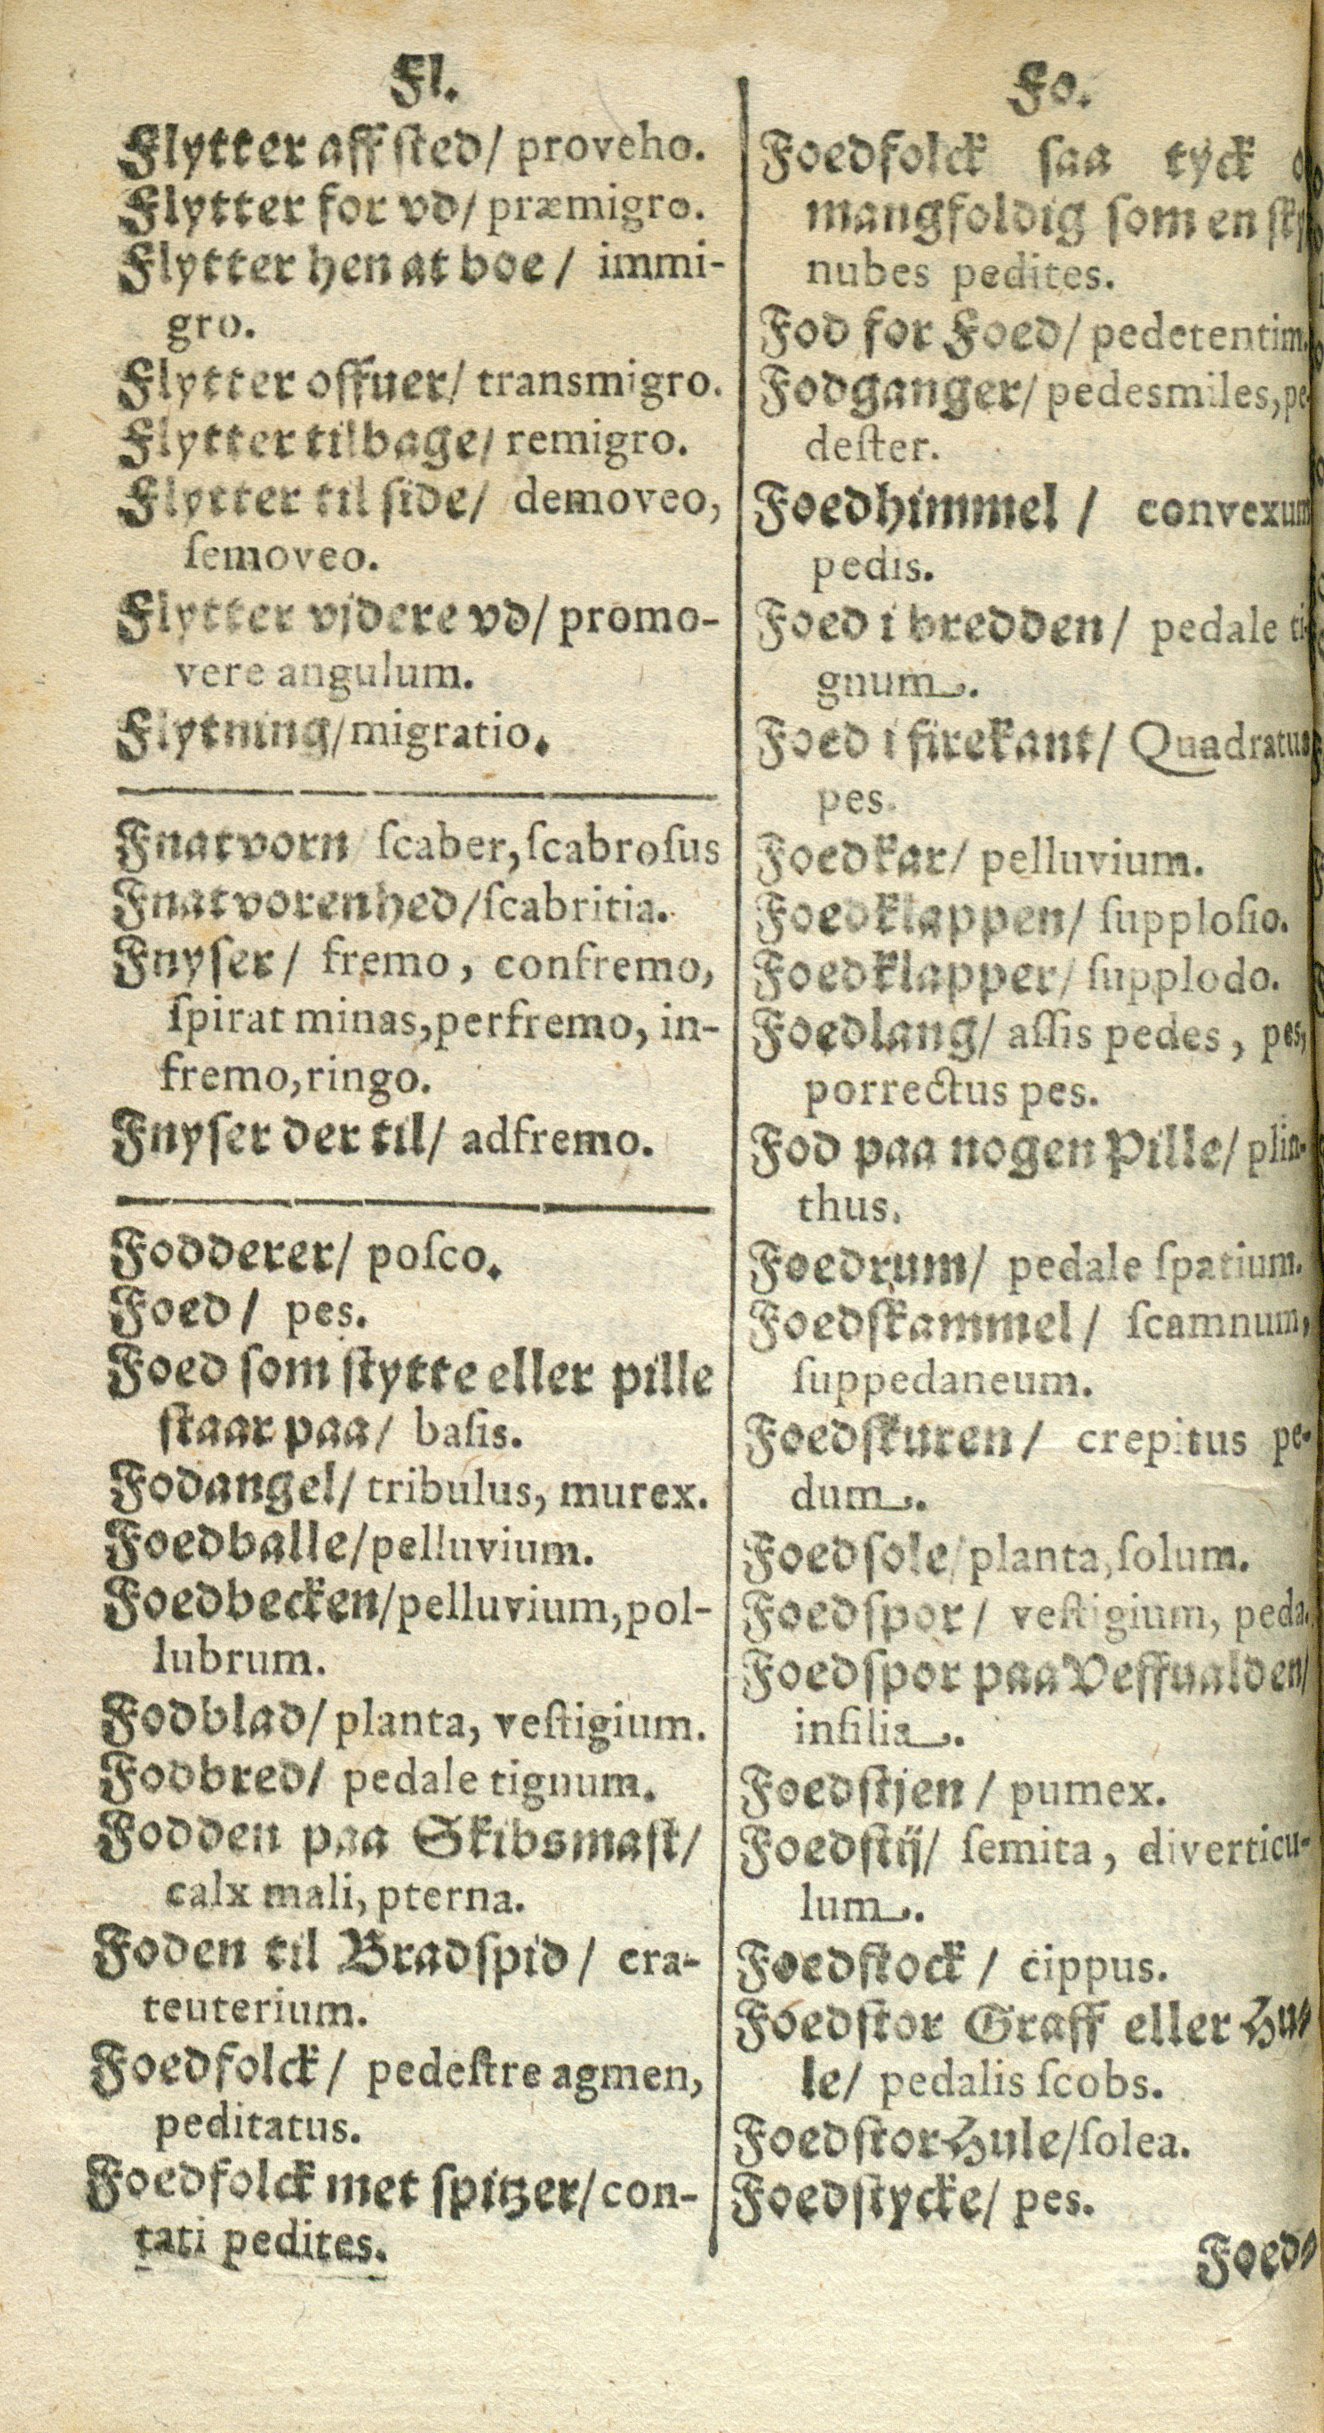 Fl.
Flytter aff sted/ proveho.
Flytter for vd/ præmigro.
Flytter hen at boe/ immi-
gro.
Flytter offuer/ transmigro.
Flytter tilbage/ remigro.
Flytter til side/ demoveo,
ſemoveo.
Flytter vjdere vd/ promo-
vere angulum.
Flytning/migratio.
Fnatvorn/ ſcaber,ſcabroſus
Fnatvorenhed/ſcabritia.
Fnyſer/ fremo, confremo,
ſpirat minas,perfremo, in-
fremo,ringo.
Fnyſer der til/ adfremo.
Fodderer/ poſco.
Foed/ pes.
Foed ſom ſtytte eller pille
ſtaar paa/ baſis.
Fodangel/ tribulus, murex.
Foedballe/pelluvium.
Foedbecken/pelluvium,pol-
lubrum.
Fodblad/ planta, veſtigium.
Fodbred/ pedale tignum.
Fodden paa Skibsmaſt/
calx mali, pterna.
Foden til Bradſpid/ cra-
teuterium.
Foedfolck/ pedeſtre agmen,
peditatus.
Foedfolck met ſpitzer/con-
tati pedites.
Fo.
Foedfolck ſaa tyck
mangfoldig ſom en
nubes pedites.
Fod for Foed/ pedetentim.
Fodganger/ pedesmiles, pe-
deſter.
Foedhimmel/ convexum
pedis.
Foed i bredden/ pedale ti-
gnum.
Foed i firekant/ Quadratus
pes.
Foedkar/ pelluvium.
Foedklappen/ ſupploſio.
Foedklapper/ ſupplodo.
Foedlang/ aſſis pedes, pes,
porrectus pes.
Fod paa nogen Pille/ plin-
thus.
Foedrum/ pedale ſpatium.
Foedſkammel/ ſcamnum,
ſuppedaneum.
Foedſkuren/ crepitus pe-
dum.
Foedſole/planta,ſolum.
Foedſpor/ veſtigium, peda.
Foedſpor paa Veffualden/
inſilia.
Foedſtjen/ pumex.
Foedſtij/ ſemita, diverticu-
lum.
Foedſtock/ cippus.
Foedſtor Graff eller Hu-
le/ pedalis ſcobs.
Foedſtor Hule/ſolea.
Foedſtycke/ pes.
Foed-